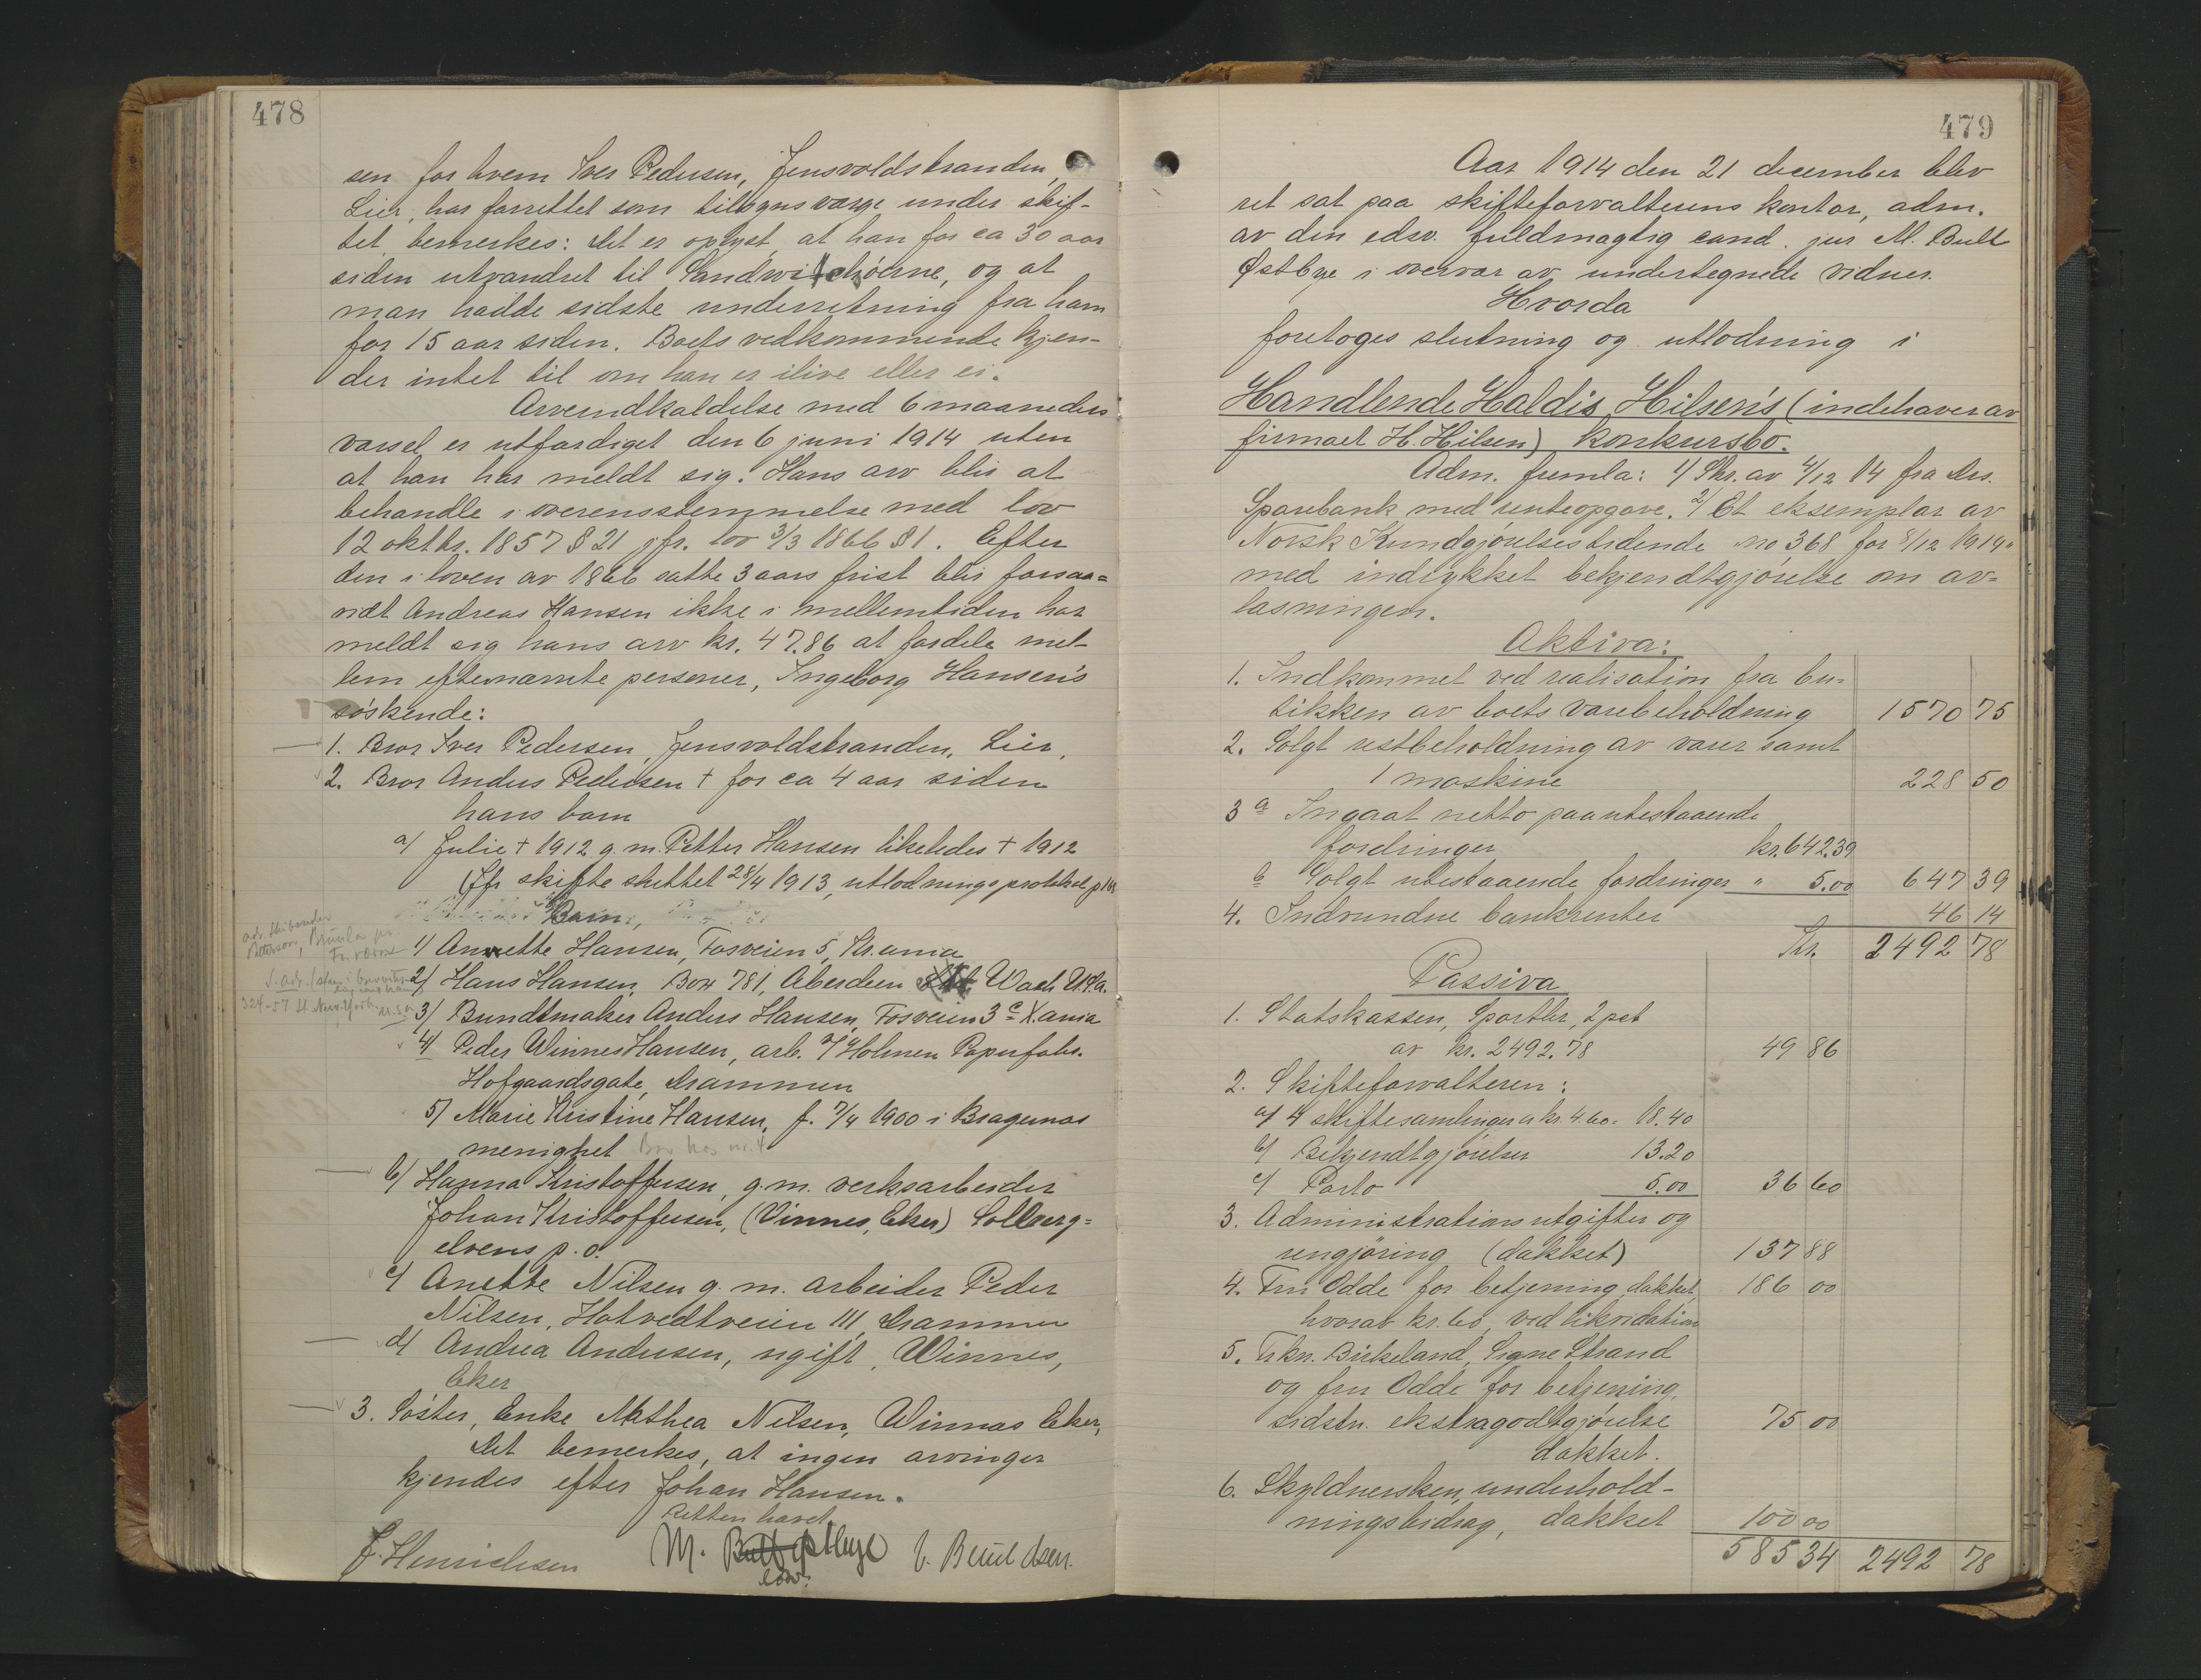 478
sen for hvem Iver Pedersen, Jensvoldstranden,
Lier, har forrettet som tilsynsværge under skif-
tet, bemerkes: Det er oplyst, at han for ca 30 aar
siden utvandret til Sandwichöerne, og at
man hadde sidste underretning fra ham
for 15 aar siden. Boets vedkommende kjen-
der intet til om han er ilive eller ei.
Arveindkaldelse med 6 maaneders
varsel er utfærdiget den 6 juni 1914 uten
at han har meldt sig. Hans arv blir at
behandle i overensstemmelse med lov
12 oktbr. 1857 § 21 jfr. lov 3/3 1866 § 1. Efter
den i loven av 1866 satte 3 aars frist blir forsaa=
vidt Andreas Hansen ikke i mellemtiden har
meldt sig hans arv kr. 47.86 at fordele mel-
lem efternævnte personer, Ingeborg Hansen's
söskende:
1. Bror Iver Pedersen, Jensvoldstranden, Lier,
2. Bror Anders Pedersen † for ca 4 aar siden
hans barn
a/ Julie † 1912 g. m. Petter Hansen likeledes † 1912
(Jfr skifte sluttet 28/4 1913, utlodningsprotokol p
Barn,
1) Annette Hansen, Fosveien 5, Kr.ania
2) Hans Hansen, Box 781, Aberdeen Wach U.S.A.
324-57 St. New York
3) Bundtmaker Anders Hansen, Fosveien 3 c X.ania
4) Peder Winnes Hansen, arb. v/ Holmen Papirfabr.
Hofgaardsgate, Drammen
5) Marie Kristine Hansen, f. 7/4 1900 i Bragernæs
menighet Bor hos nr. 4
b) Hanna Kristoffersen, g. m. verksarbeider
Johan Kristoffersen, (Vinnes, Eker) Solberg=
elvens p. o.
c) Anette Nilsen g. m. arbeider Peder
Nilsen, Hotvedtveien 111, Drammen
d) Andrea Andersen, ugift, Winnes,
Eker
3. Söster, Enke Mathea Nilsen, Winnæs Eker,
Det bemerkes, at ingen arvinger
kjendes efter Johan Hansen.
Retten hævet
J. Henrichsen M. Bull Østbye
const.
479
Aar 1914 den 21 december blev
ret sat paa skifteforvalterens kontor, adm.
av den edsv. fuldmægtig cand. jur M. Bull
Østbye i overvær av undertegnede vidner.
Hvorda
foretoges slutning og utlodning i
Handlende Haldis Hilsen's (indehaver av
firmaet H. Hilsen) konkursbo.
Adm. fremla: 1/ Skr. av 4/12 14 fra Drs.
Sparebank med renteopgave. 2/ Et eksemplar av
Norsk Kundgjörelsestidende no 368 for 8/12 1914
med indrykket bekjendtgjörelse om av=
læsningen.
Aktiva:
1. Indkommet ved realisation fra bu-
tikken av boets varebeholdning 1570 75
2. Solgt restbeholdning av varer samt
1 maskine 228 50
3 a Ingaat netto paa utestaaende
fordringer kr. 642.39
b Solgt utestaaende fordringer " 5.00 647 39
4. Indvundne bankrenter 46 14
Kr. 2492 78
Passiva
1. Statskassen, Sportler, 2 pct
av kr. 2492.78 49 86
2. Skifteforvalteren:
a/ 4 skiftesamlinger a kr. 4.60 = 18.40
b/ Bekjendtgjörelser 13.20
c/ Porto 5.00 36 60
3. Administrationsutgifter og
rengjöring (dækket) 137 88
4. Fru Odde for betjening, dækket, 186 00
hvorav kr. 60, ved likvidation
5. Frkn. Birkeland, Signe Strand
og fru Odde for betjening,
sidstn. ekstragodtgjörelse 75 00
dækket.
6. Skyldnersken, underhold-
ningsbidrag, dækket 100 00
585 34 2492 78